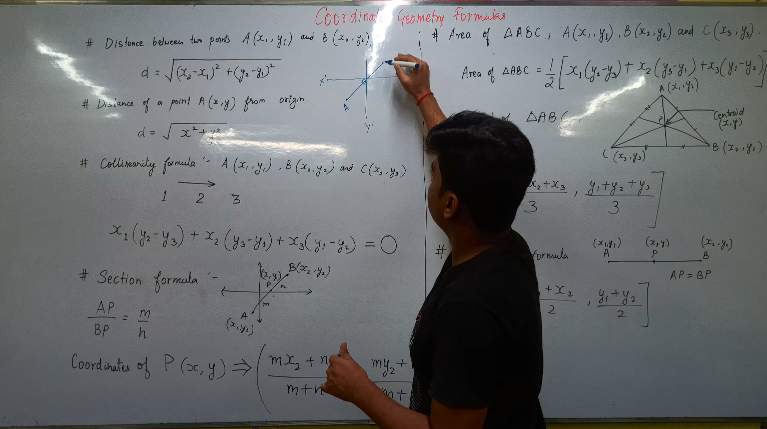 Coordinate Geometry Formulas
# Distance between two points A(x₁, y₁) and B(x₂, y₂)
d = √((x₂-x₁)² + (y₂-y₁)²)
# Distance of a point A(x, y) from origin
d = √(x² + y²)
# Collinearity formula :- A(x₁, y₁), B(x₂, y₂) and C(x₃, y₃)
1 → 2 3
x₁(y₂-y₃) + x₂(y₃-y₁) + x₃(y₁-y₂) = 0
# Section formula :-
AP/BP = m/n
(x, y)
B(x₂, y₂)
P
n
m
A
(x₁, y₁)
Coordinates of P(x, y) ⇒ (mx₂ + n
m+n
my₂ +
m+
# Area of △ABC, A(x₁, y₁), B(x₂, y₂) and C(x₃, y₃).
Area of △ABC = 1/2 [x₁(y₂-y₃) + x₂(y₃-y₁) + x₃(y₁-y₂)]
A(x₁, y₁)
of △ABC
Centroid
(x, y)
P
C(x₃, y₃)
B(x₂, y₂)
x₂+x₃
3
, (y₁+y₂+y₃)/3]
#
formula
(x₁, y₁) (x, y) (x₂, y₂)
A P B
AP = BP
+ x₂
2
, (y₁+y₂)/2]